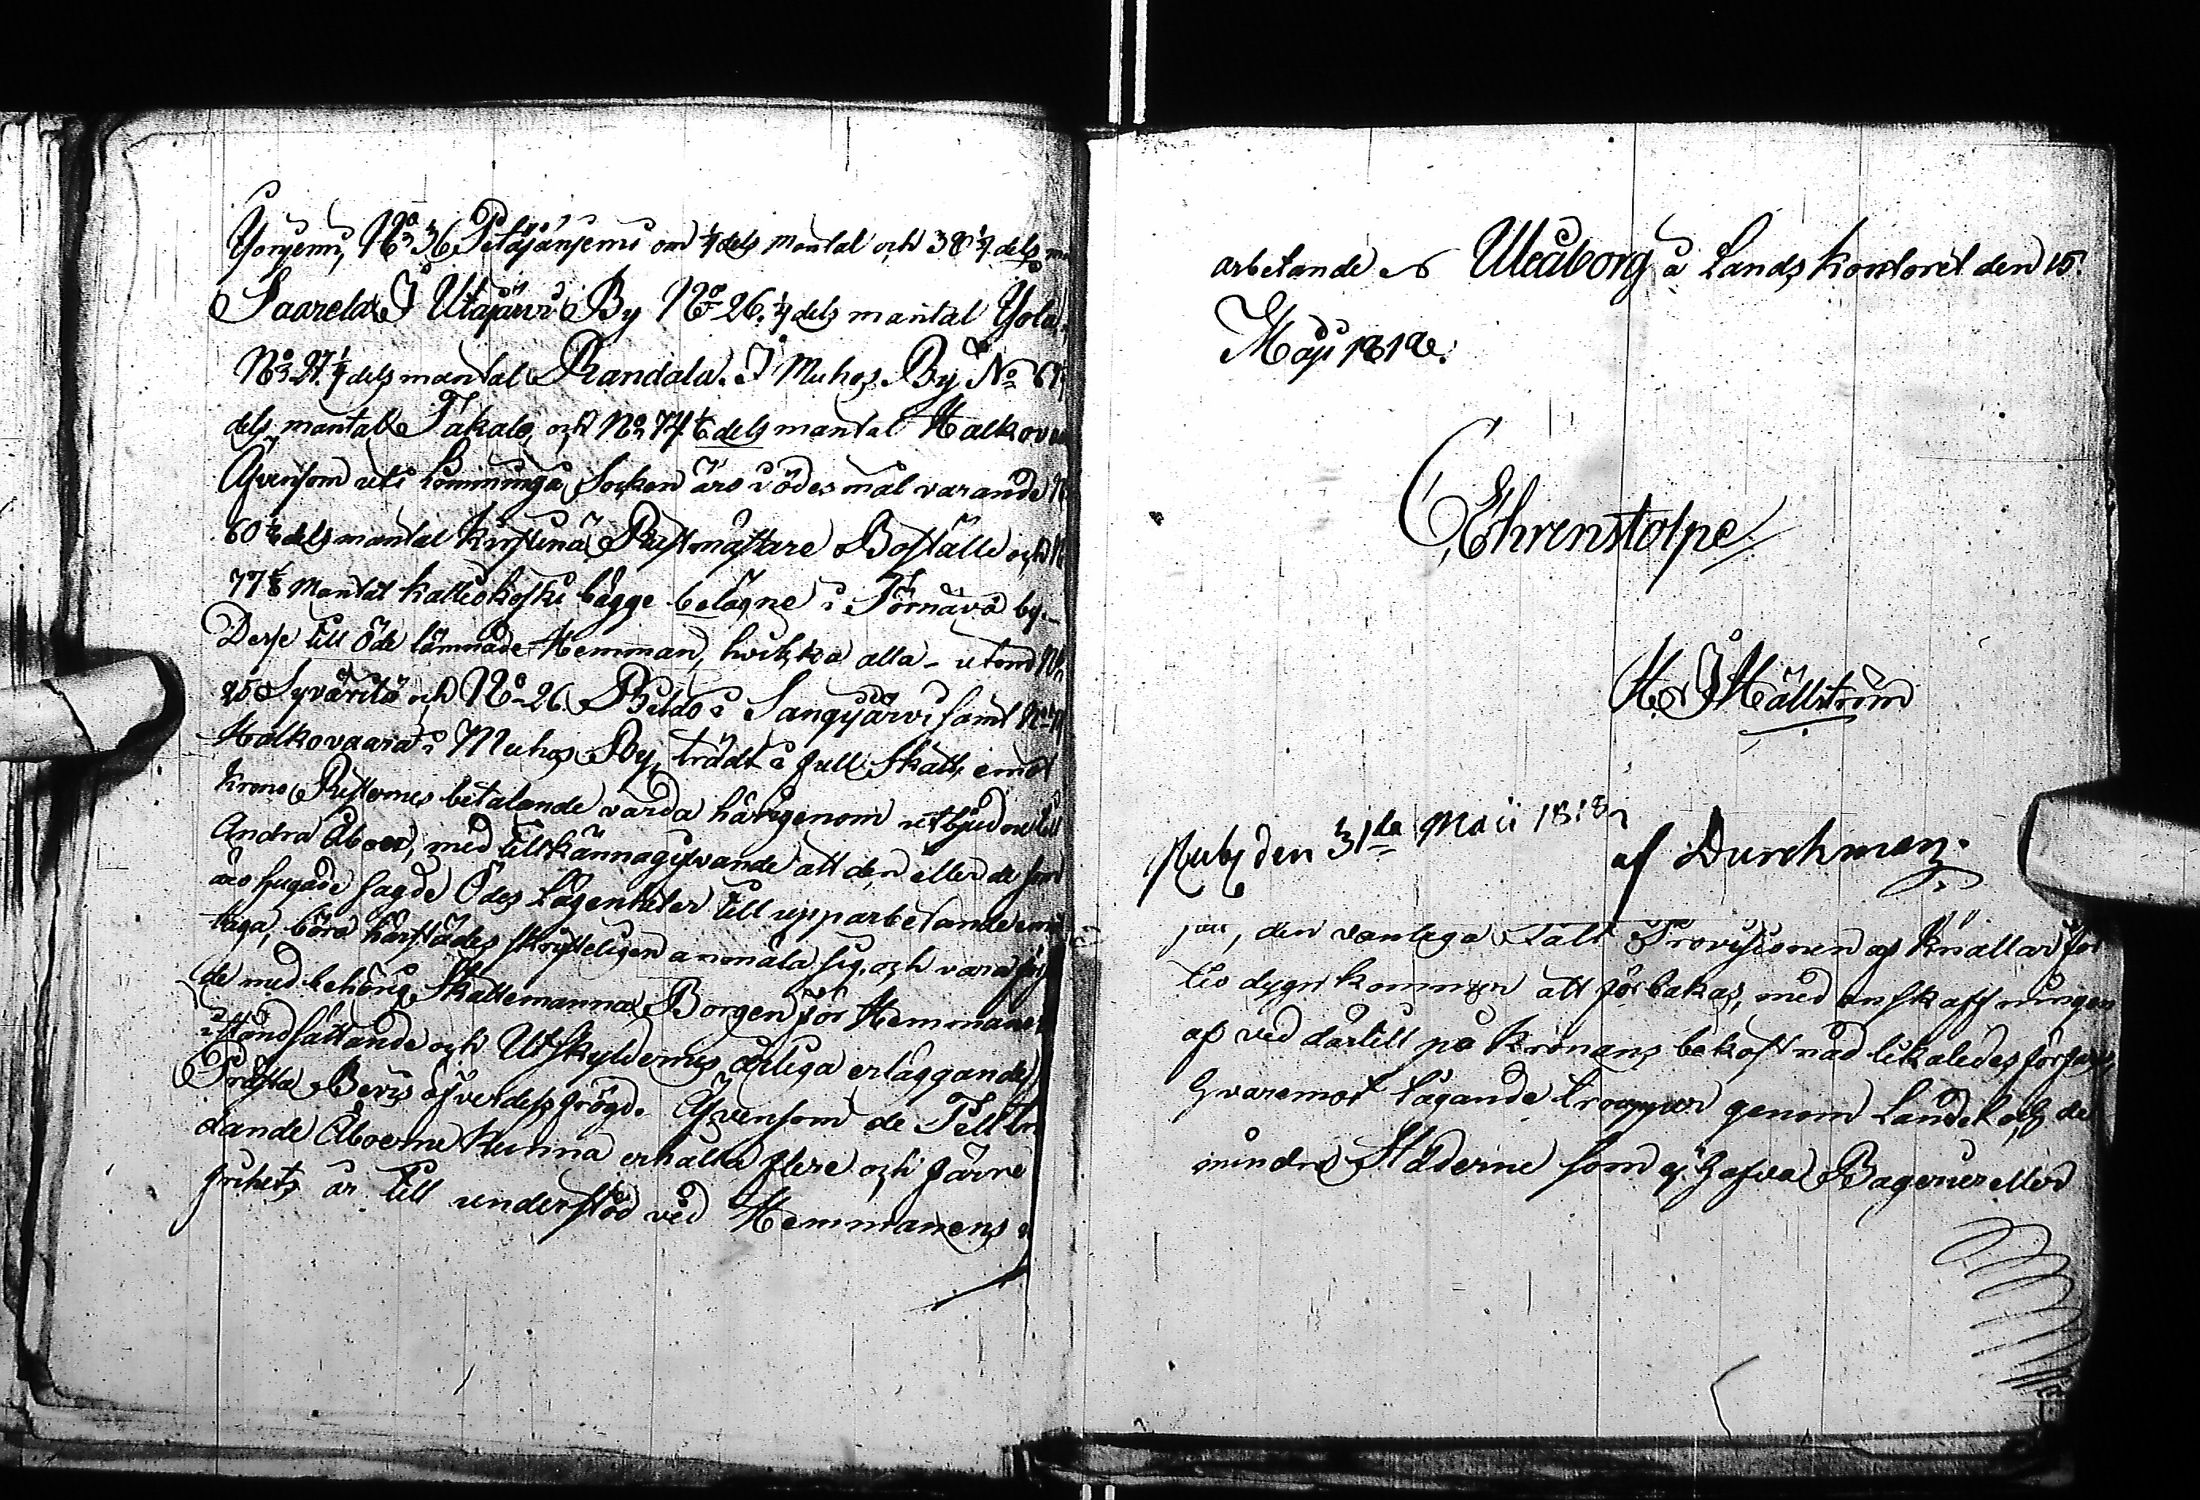 Yonjemi, No 36 Petäjänjemi om 1/4 dels mantal och 38 1/4 dels
Saarela. I Utajärvi By No 26. 1/4 dels mantal Yola,
No 27. 1/4 dels mantal Randala. I Muhos By No
dels mantal Takalo, och No 74 1/6 dels mantal Halkova
Äfvensom uti Limminga Socken äro i ödesmål varande
60 dels mantal Kirstinä Rustmästare Boställe och
77 Mantal Kallioskoski bägge belägne i Törnävä by.
Desse till Öde lämnade Hemman, hvilka alla utom No
25 Syväritä och No 26 Peldo i Sangijärvi samt
Halkovaara i Muhos By, trädt i full Skatt, emot
Krono Resternes betalande varda härigenom utbjudne till
Andra Åboer, med tillkännagifvande att den eller de som
äro hugade sagde Ödes Lägenheter till upparbetande
taga, böra härstädes skrifteligen anmäla sig, och vara
de med behörig Skattemanna Borgen för Hemmanets
i Ståndsättande och Utskyldernes årliga erläggande,
Prästa Bevis öfver dess frägd. Äfvensom de Tillträ
dande Åboerne kunna erhålla flere och färre
frihets år till understöd vid Hemmanens
arbetande. Uleåborg å Lands Kontoret den 15.
Maji 1818.
C Ehrenstolpe
H. J Hällström
Publ den 31sta Maii 1818,
af Durchman
den vanliga Fält Provisionen af Knallar för
tio dygn kommer att förbakas, med anskaffningen
af ved därtill på Kronans bekostnad likaledes
Hvaremot tågande trouppar genom Landet och de
mindre Städerne som ej hafva Bagerier eller